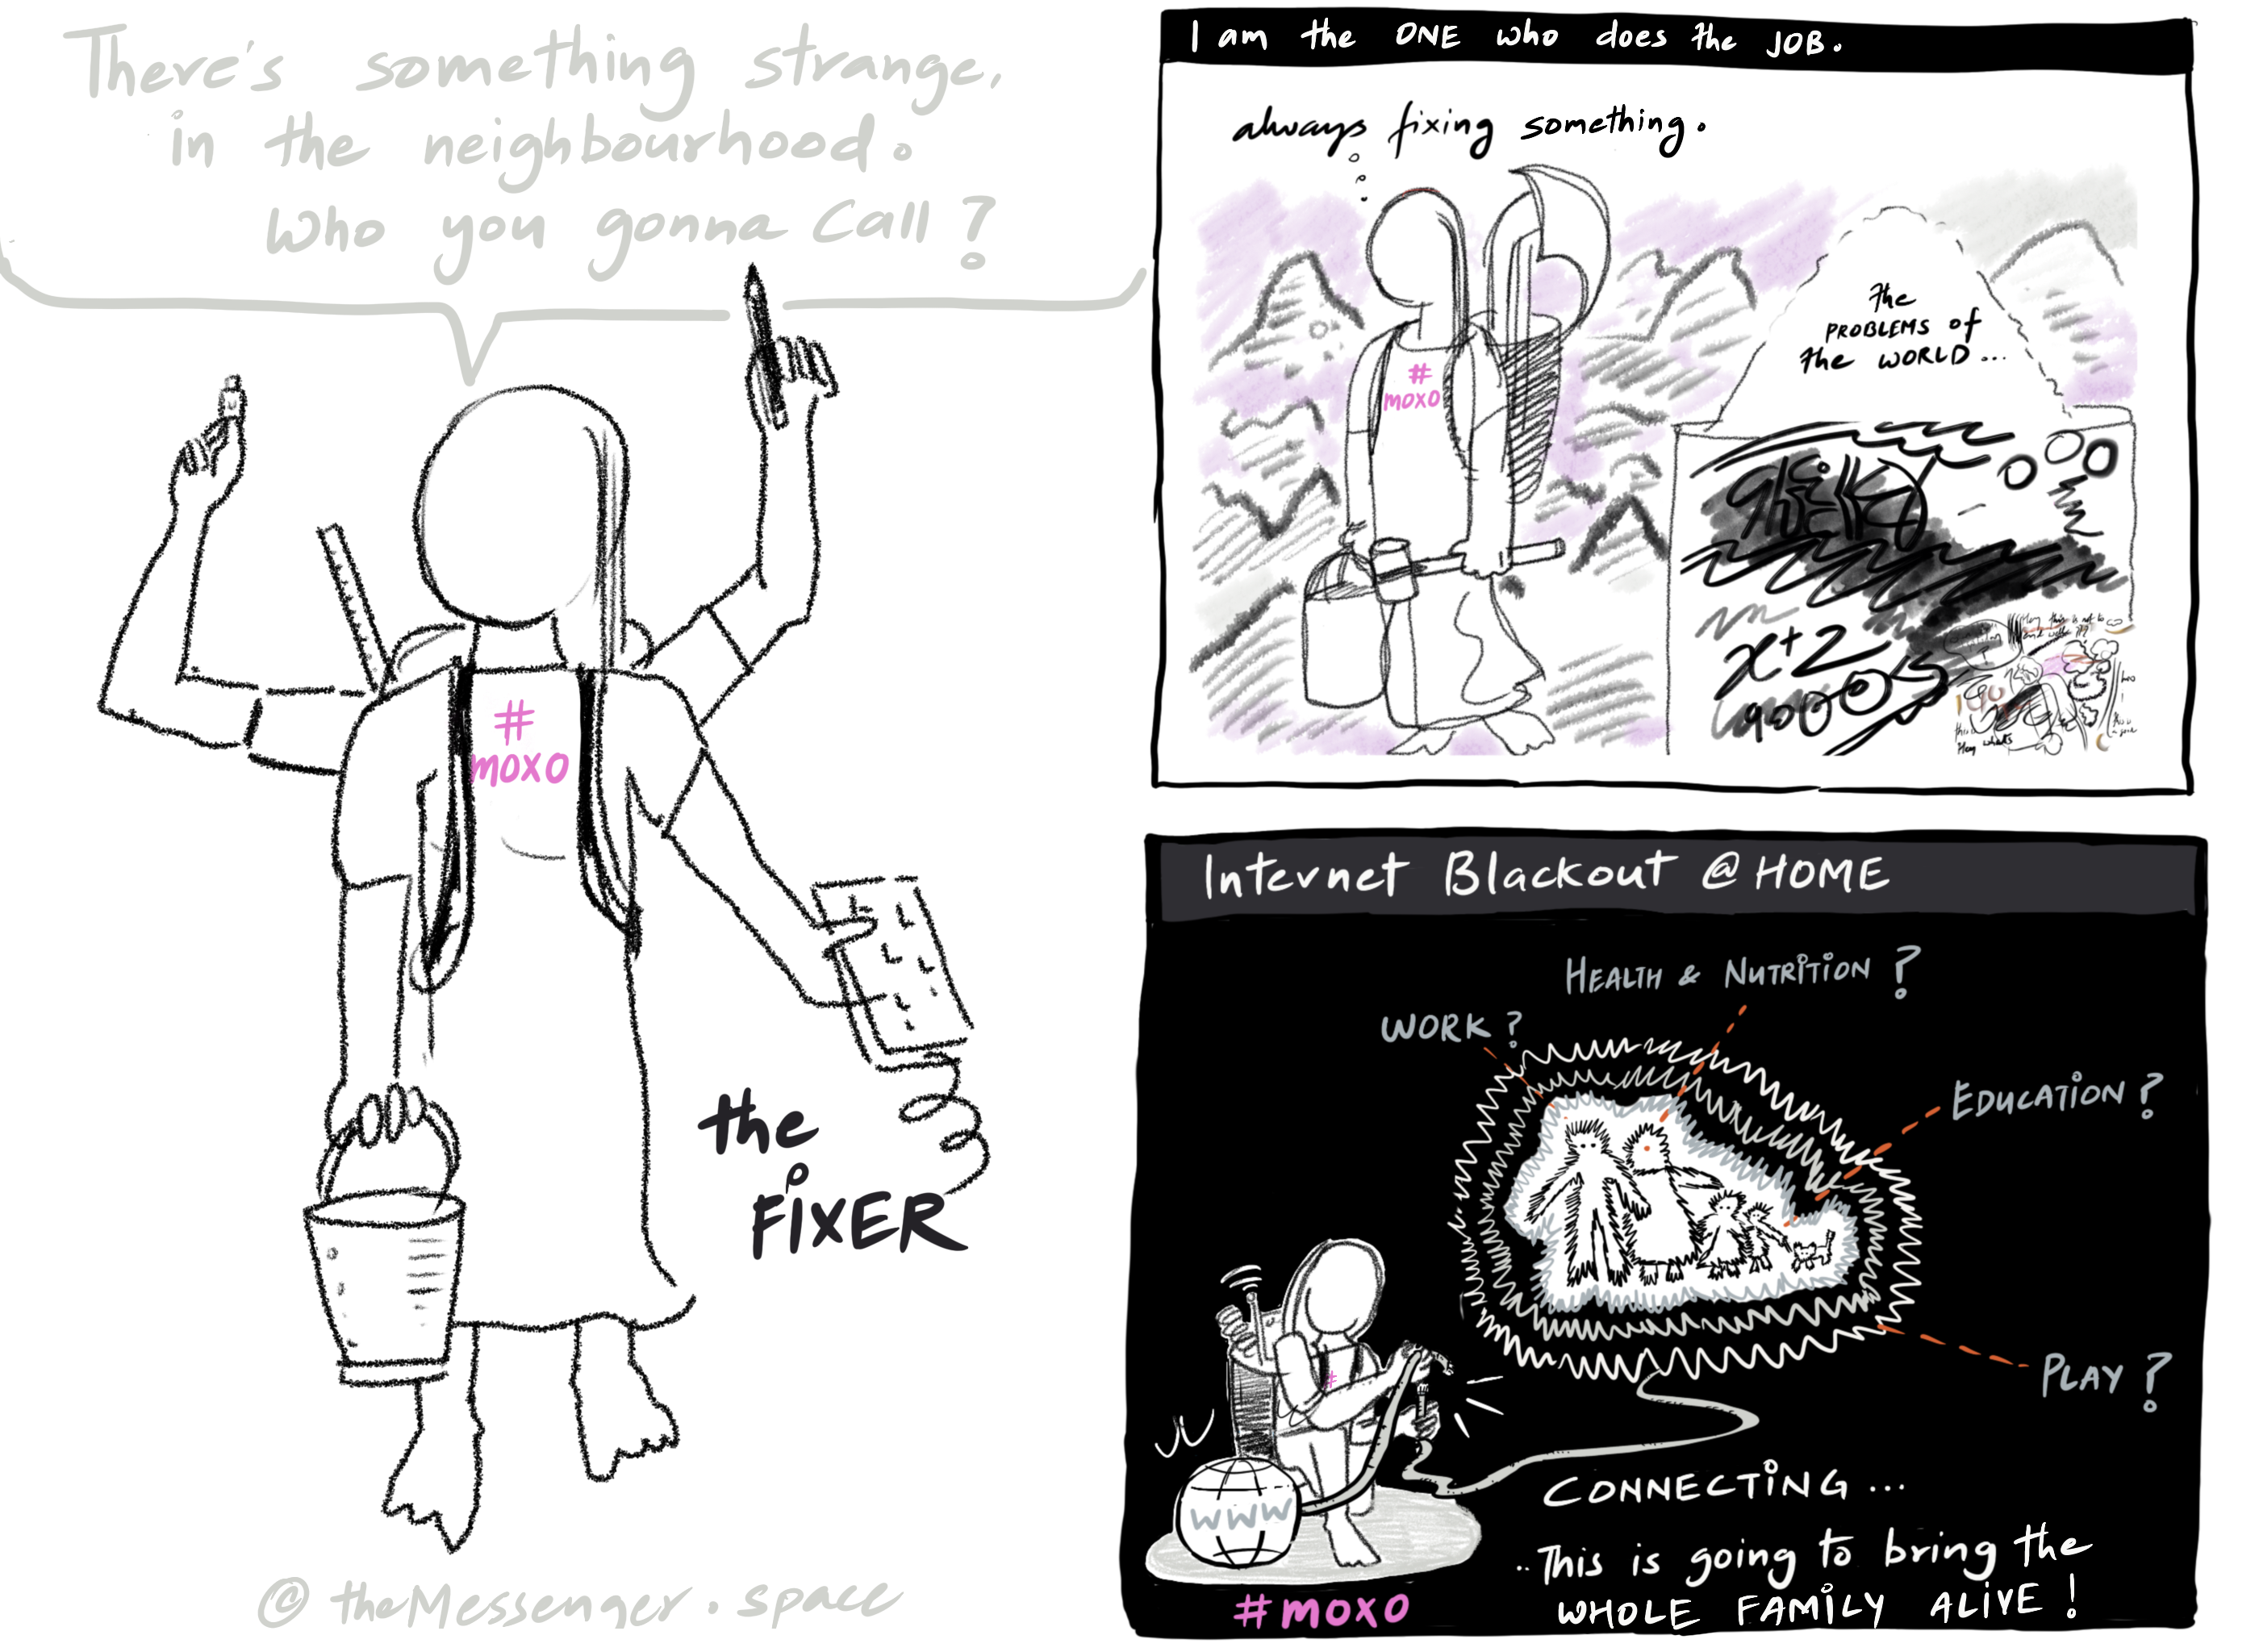 There's something strange,
in the neighbourhood.
Who you gonna call?
#
moxo
the
FIXER
@theMessenger.space
I am the ONE who does the JOB.
always fixing something.
#
moxo
the
PROBLEMS of
the WORLD...
x+2
Internet Blackout @HOME
HEALTH & NUTRITION?
WORK?
EDUCATION?
PLAY?
#
WWW
CONNECTING...
..This is going to bring the
WHOLE FAMILY ALIVE!
#moxo